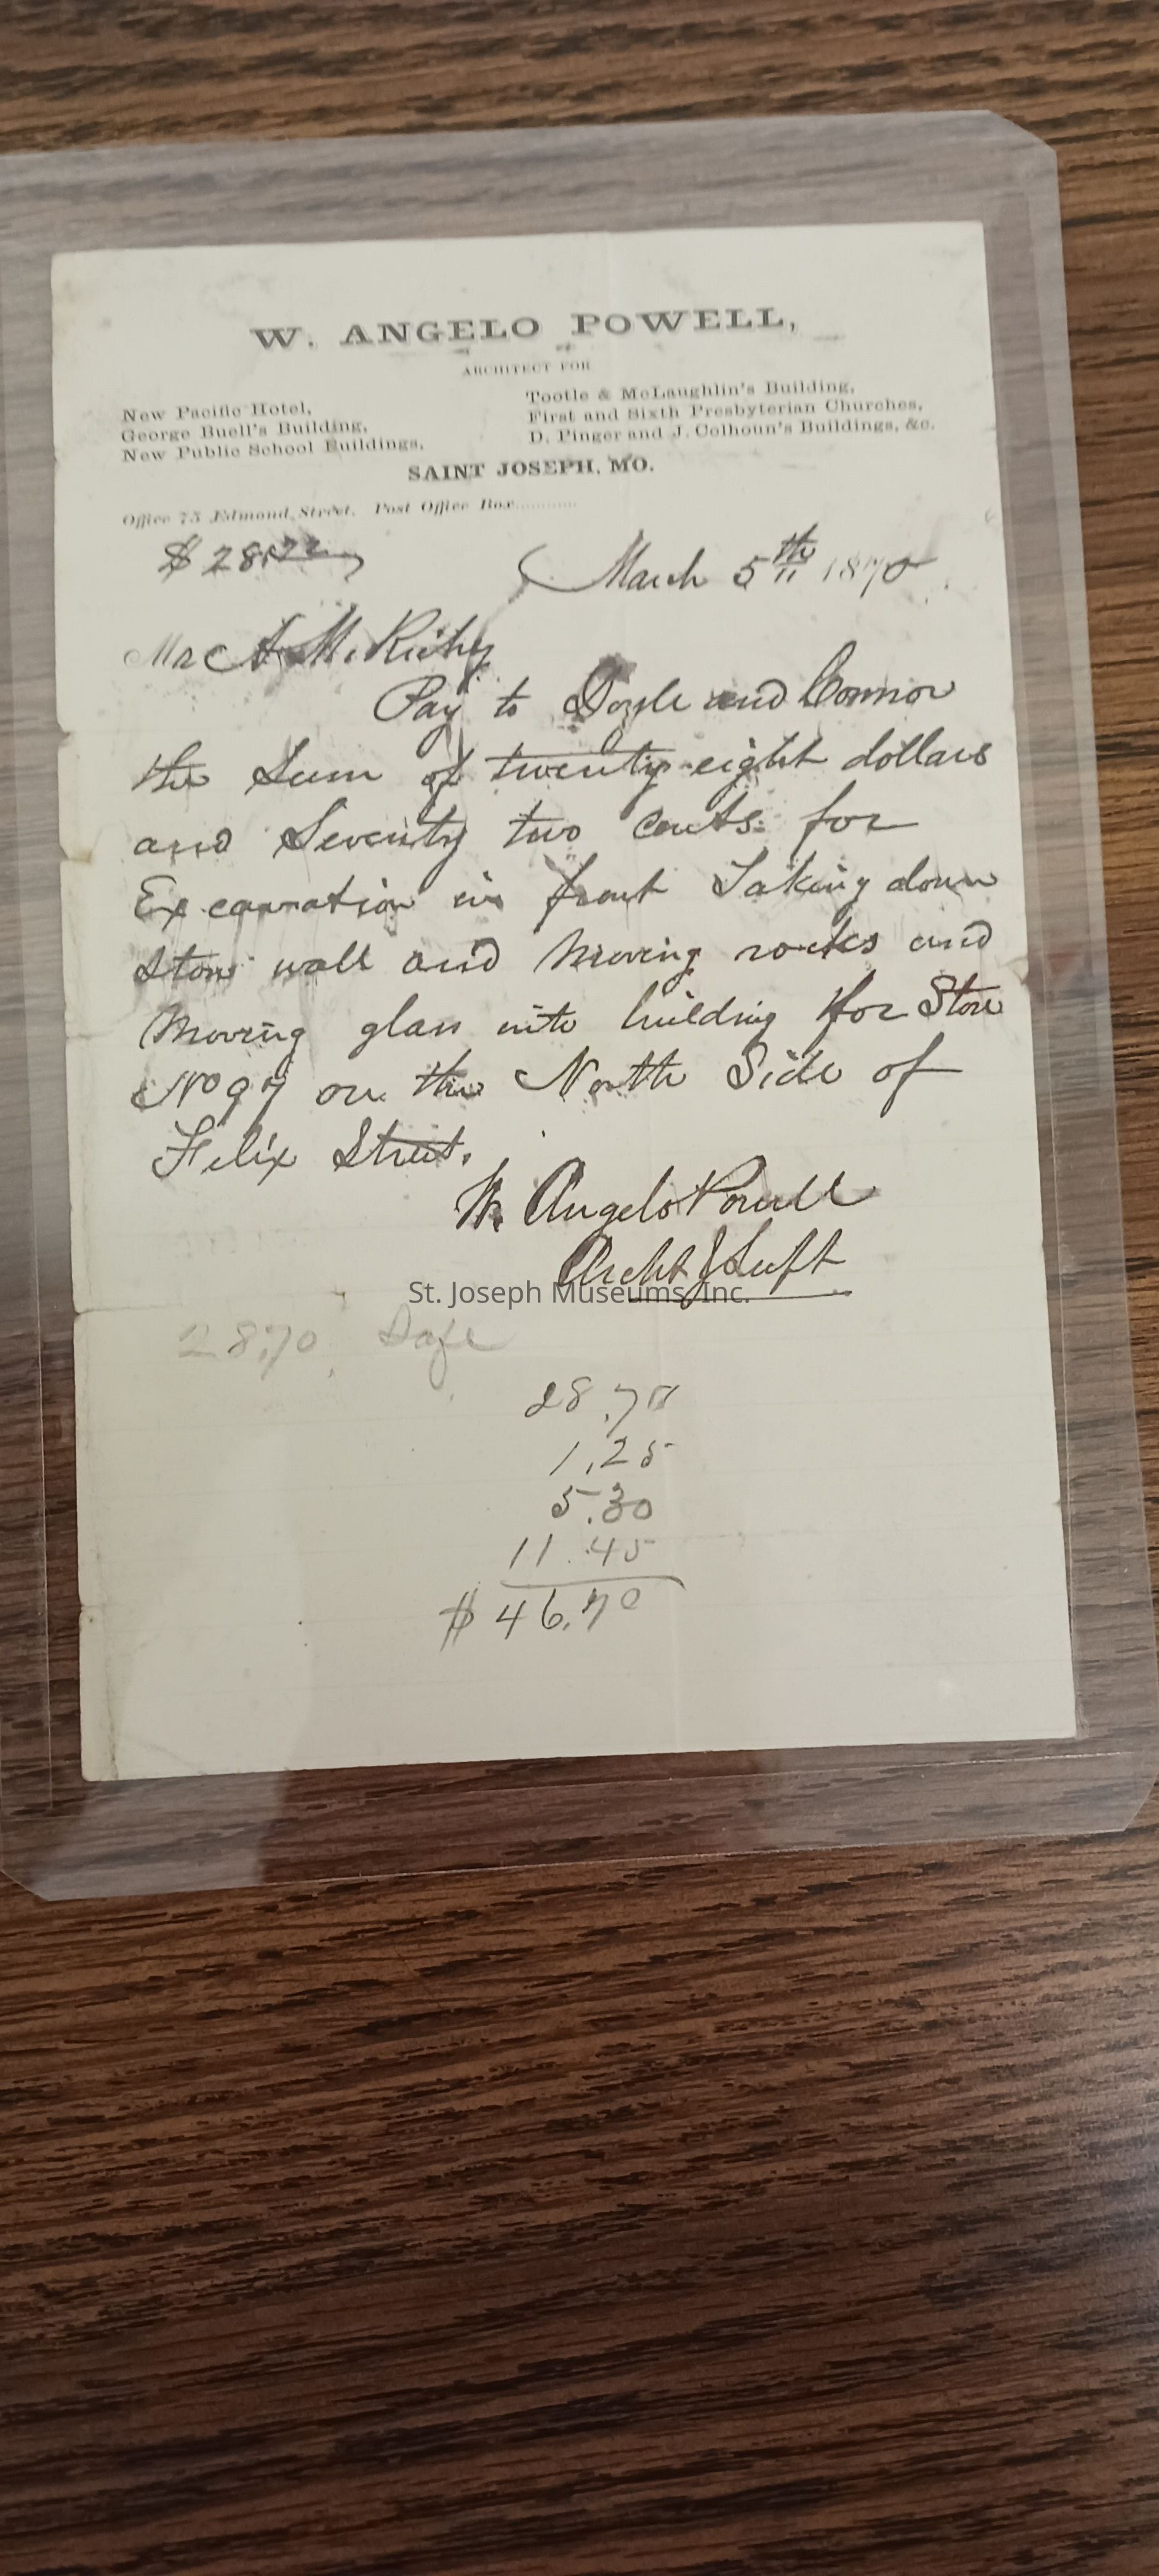 W. ANGELO POWELL,
ARCHITECT FOR
New Pacific Hotel,
George Buell's Building,
New Public School Buildings,
Tootle & McLaughlin's Building,
First and Sixth Presbyterian Churches,
D. Pinger and J. Colhoun's Buildings, &c.
SAINT JOSEPH, MO.
Office 75 Edmond Street. Post Office Box............
$28.72
March 5th 1870
Mr A. M. Richy
Pay to Doyle and Connor
the Sum of twenty eight dollars
and Seventy two cents for
Excavation in front Taking down
Stone wall and Moving rocks and
Moving glass into building for Store
No 97 on the North Side of
Felix Street.
W. Angelo Powell
Archt & Supt
St. Joseph Museums, Inc.
28.70
28.70
1.25
5.30
11.45
$46.70